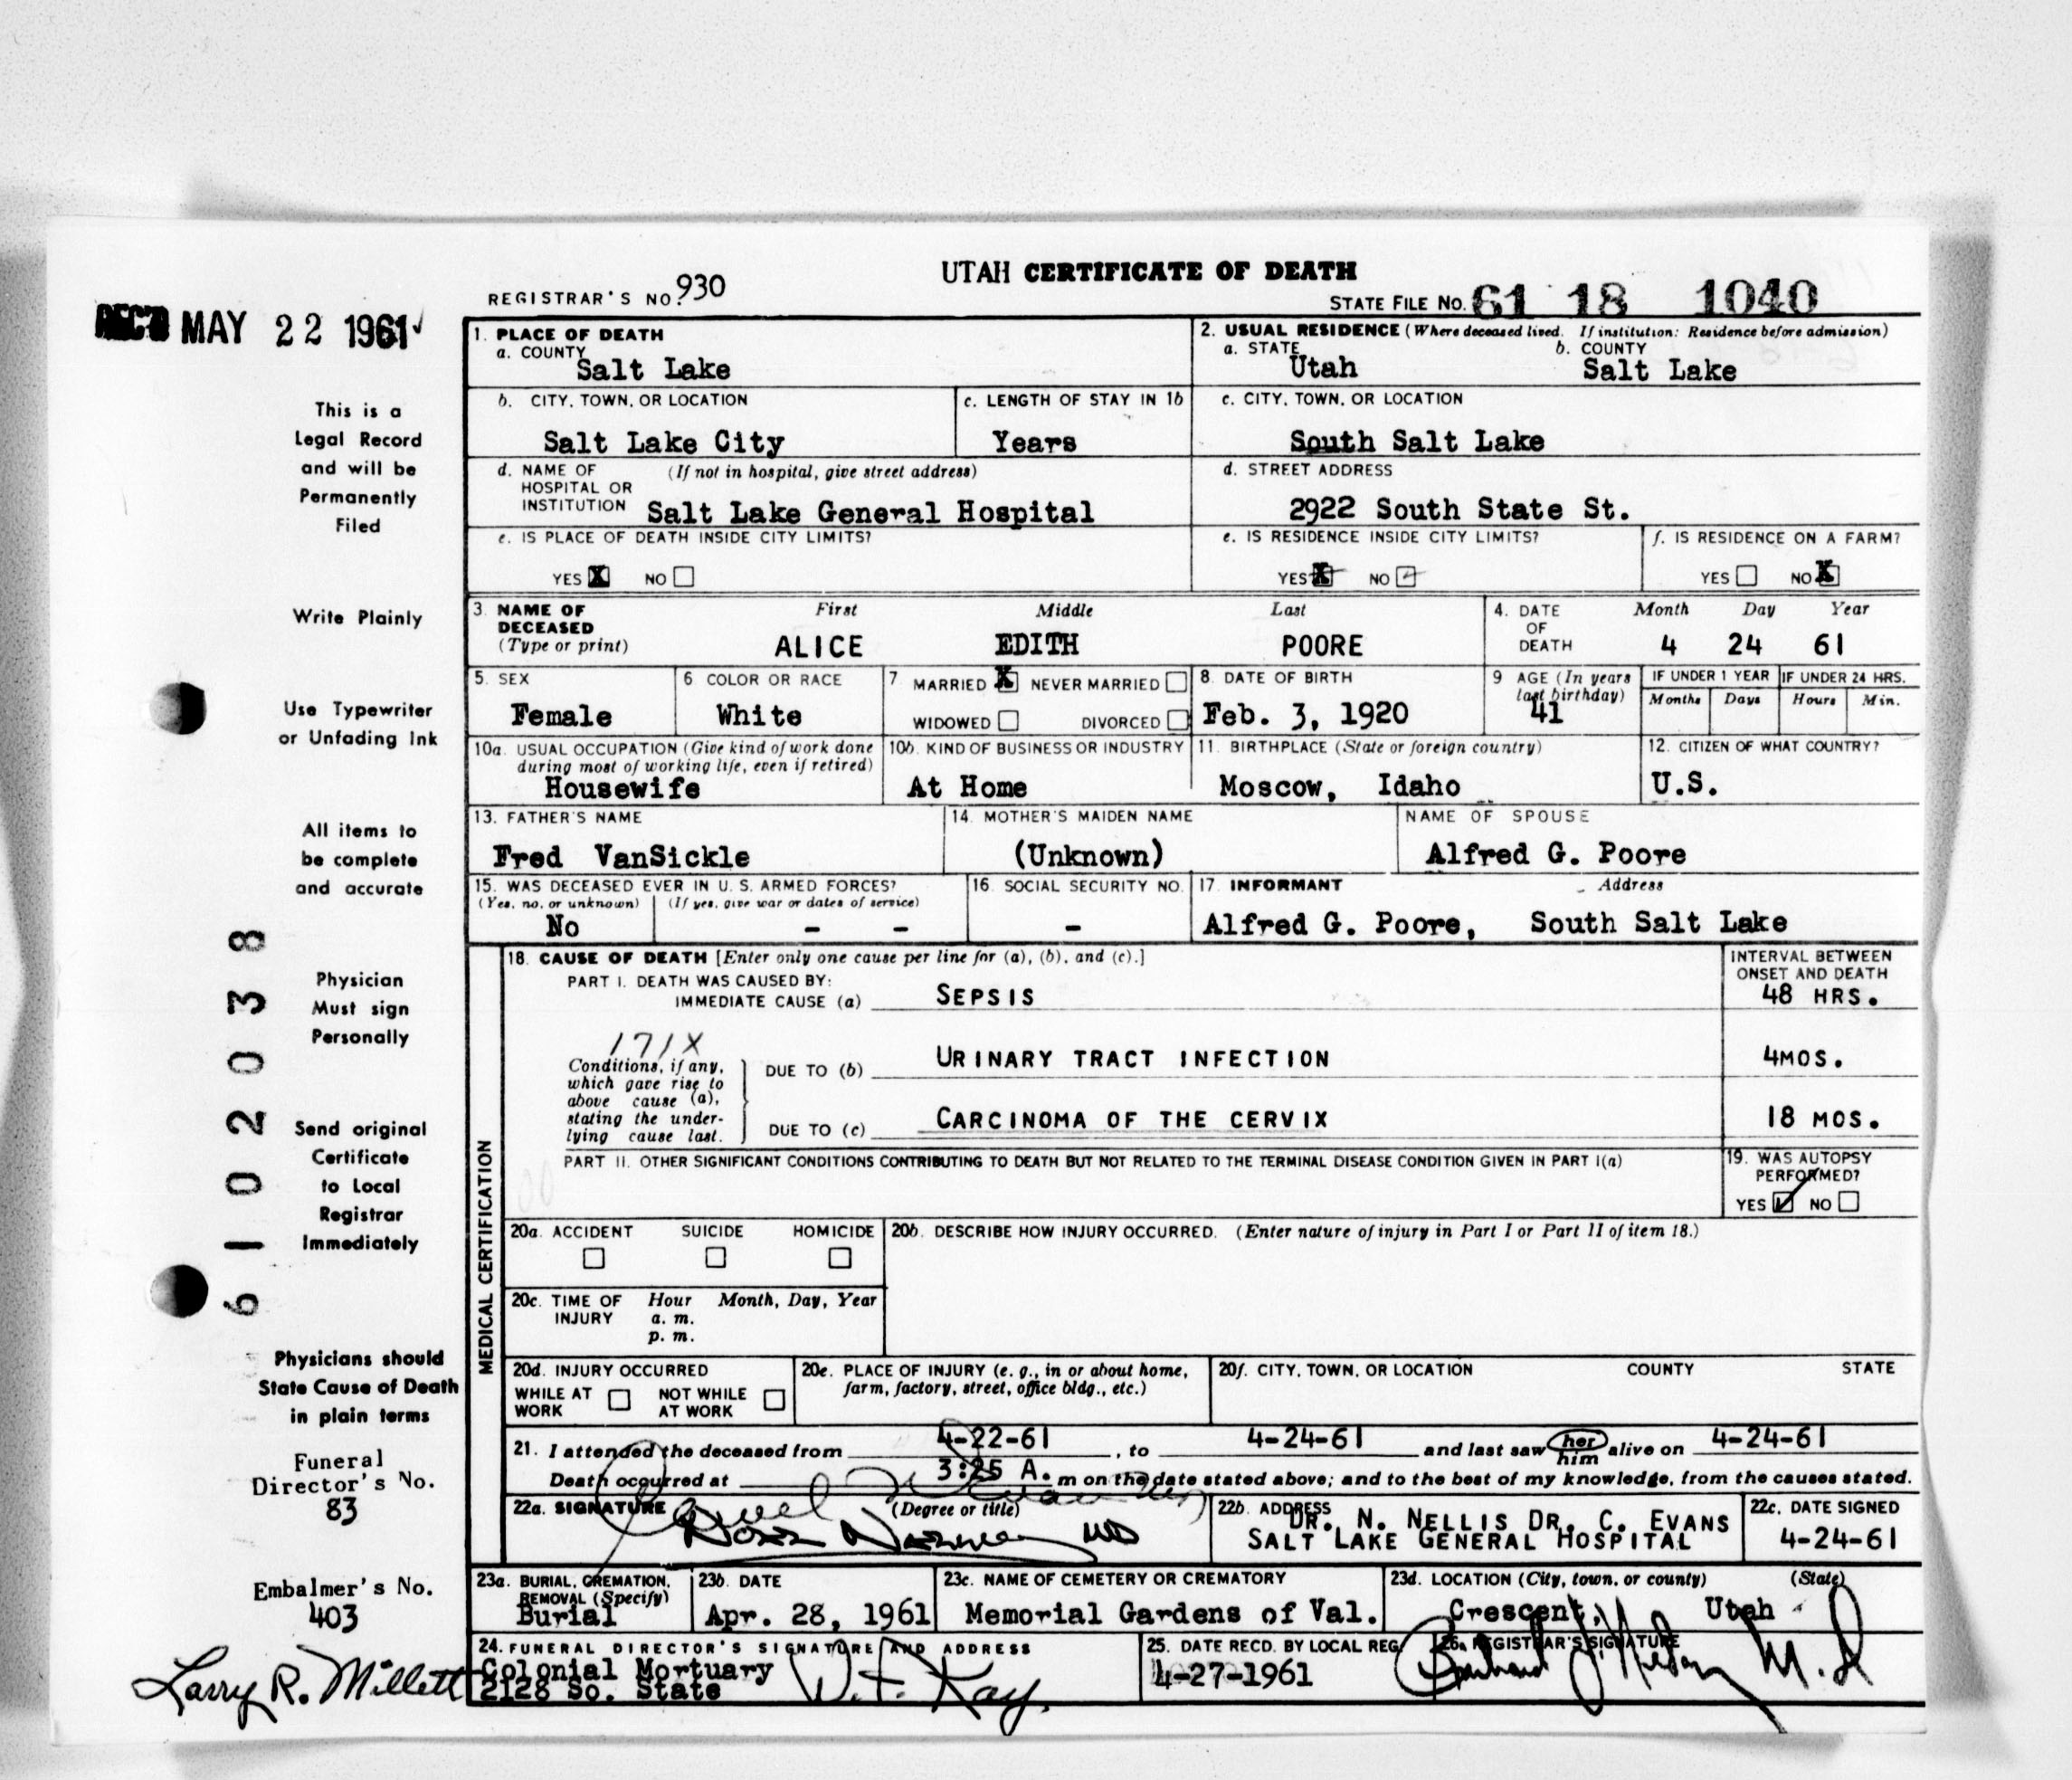 UTAH CERTIFICATE OF DEATH
REGISTRAR'S NO. 930
STATE FILE NO. 61 18 1040
REC'D MAY 22 1961
This is a
Legal Record
and will be
Permanently
Filed
Write Plainly
Use Typewriter
or Unfading Ink
All items to
be complete
and accurate
Physician
Must sign
Personally
Send original
Certificate
to Local
Registrar
Immediately
Physicians should
State Cause of Death
in plain terms
Funeral
Director's No.
83
Embalmer's No.
403
Larry R. Millett
6102038
1. PLACE OF DEATH
a. COUNTY
Salt Lake
2. USUAL RESIDENCE (Where deceased lived. If institution: Residence before admission)
a. STATE b. COUNTY
Utah Salt Lake
b. CITY, TOWN, OR LOCATION
Salt Lake City
c. LENGTH OF STAY IN 1b
Years
c. CITY, TOWN, OR LOCATION
South Salt Lake
d. NAME OF (If not in hospital, give street address)
HOSPITAL OR
INSTITUTION Salt Lake General Hospital
d. STREET ADDRESS
2922 South State St.
e. IS PLACE OF DEATH INSIDE CITY LIMITS?
YES X NO
e. IS RESIDENCE INSIDE CITY LIMITS?
YES X NO
f. IS RESIDENCE ON A FARM?
YES NO X
3. NAME OF First Middle Last
DECEASED
(Type or print) ALICE EDITH POORE
4. DATE Month Day Year
OF
DEATH 4 24 61
5. SEX
Female
6. COLOR OR RACE
White
7. MARRIED X NEVER MARRIED
WIDOWED DIVORCED
8. DATE OF BIRTH
Feb. 3, 1920
9. AGE (In years
last birthday)
41
IF UNDER 1 YEAR IF UNDER 24 HRS.
Months Days Hours Min.
10a. USUAL OCCUPATION (Give kind of work done
during most of working life, even if retired)
Housewife
10b. KIND OF BUSINESS OR INDUSTRY
At Home
11. BIRTHPLACE (State or foreign country)
Moscow, Idaho
12. CITIZEN OF WHAT COUNTRY?
U.S.
13. FATHER'S NAME
Fred VanSickle
14. MOTHER'S MAIDEN NAME
(Unknown)
NAME OF SPOUSE
Alfred G. Poore
15. WAS DECEASED EVER IN U. S. ARMED FORCES?
(Yes, no, or unknown) (If yes, give war or dates of service)
No - -
16. SOCIAL SECURITY NO.
-
17. INFORMANT Address
Alfred G. Poore, South Salt Lake
MEDICAL CERTIFICATION
18. CAUSE OF DEATH [Enter only one cause per line for (a), (b), and (c).]
INTERVAL BETWEEN
ONSET AND DEATH
PART I. DEATH WAS CAUSED BY:
IMMEDIATE CAUSE (a) SEPSIS 48 HRS.
171X
Conditions, if any,
which gave rise to
above cause (a),
stating the under-
lying cause last.
DUE TO (b) URINARY TRACT INFECTION 4MOS.
DUE TO (c) CARCINOMA OF THE CERVIX 18 MOS.
PART II. OTHER SIGNIFICANT CONDITIONS CONTRIBUTING TO DEATH BUT NOT RELATED TO THE TERMINAL DISEASE CONDITION GIVEN IN PART I(a)
19. WAS AUTOPSY
PERFORMED?
YES ✓ NO
20a. ACCIDENT SUICIDE HOMICIDE
20b. DESCRIBE HOW INJURY OCCURRED. (Enter nature of injury in Part I or Part II of item 18.)
20c. TIME OF Hour Month, Day, Year
INJURY a. m.
p. m.
20d. INJURY OCCURRED
WHILE AT NOT WHILE
WORK AT WORK
20e. PLACE OF INJURY (e. g., in or about home,
farm, factory, street, office bldg., etc.)
20f. CITY, TOWN, OR LOCATION COUNTY STATE
21. I attended the deceased from 4-22-61, to 4-24-61 and last saw her him alive on 4-24-61
Death occurred at 3:25 A. m on the date stated above; and to the best of my knowledge, from the causes stated.
22a. SIGNATURE (Degree or title)
MD
22b. ADDRESS
DR. N. NELLIS DR. C. EVANS
SALT LAKE GENERAL HOSPITAL
22c. DATE SIGNED
4-24-61
23a. BURIAL, CREMATION,
REMOVAL (Specify)
Burial
23b. DATE
Apr. 28, 1961
23c. NAME OF CEMETERY OR CREMATORY
Memorial Gardens of Val.
23d. LOCATION (City, town, or county) (State)
Crescent, Utah
24. FUNERAL DIRECTOR'S SIGNATURE AND ADDRESS
Colonial Mortuary
2128 So. State
W. F. Kay.
25. DATE RECD. BY LOCAL REG.
4-27-1961
26. REGISTRAR'S SIGNATURE
M.D